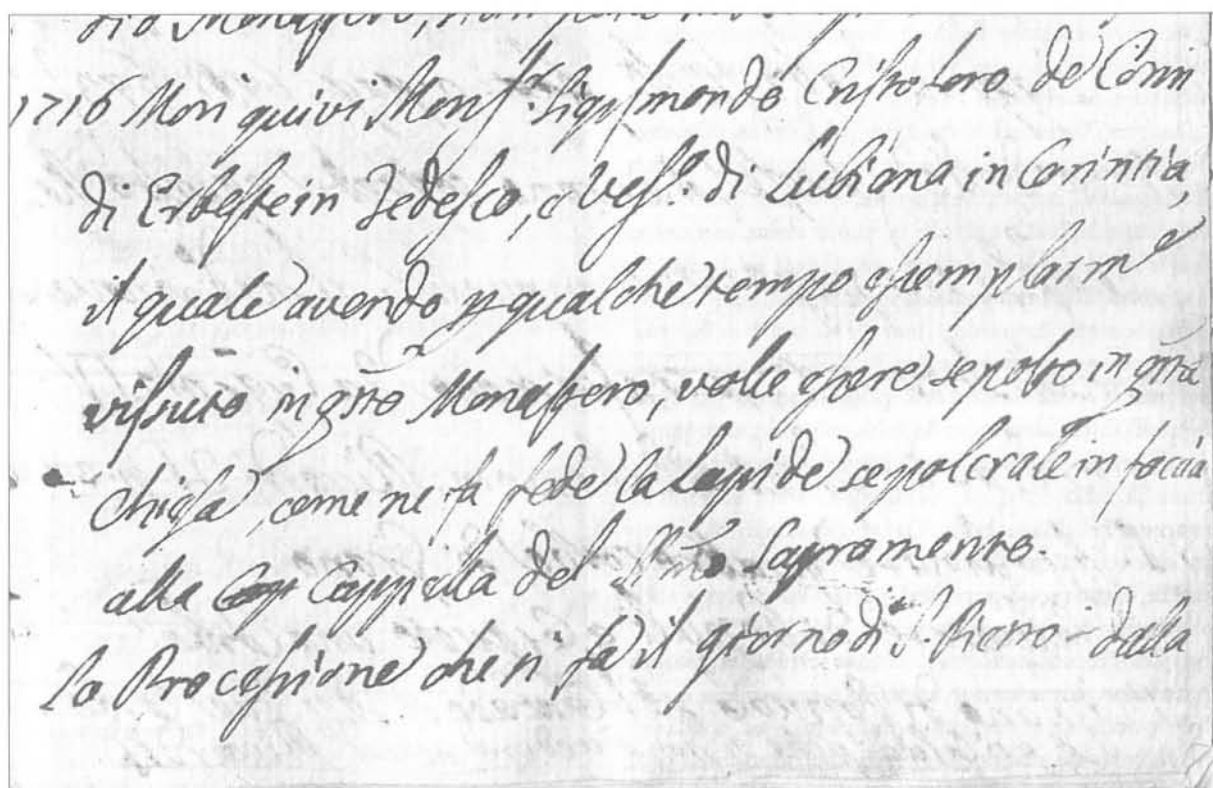 Monastero,
1716 Mori quivi Mons.r Sigismondo Cristoforo de Conti
di Erbestein Tedesco, e Vesc.o di Lubiana in Carintia,
il quale avendo p qualche tempo esemplarm.e
vissuto in qsto Monastero, volle essere sepolto in qsta
chiesa, come ne fa fede la lapide sepolcrale in faccia
alla Cappella del SSmo Sagramento.
la Processione che si fa il giorno di S. Pietro dalla